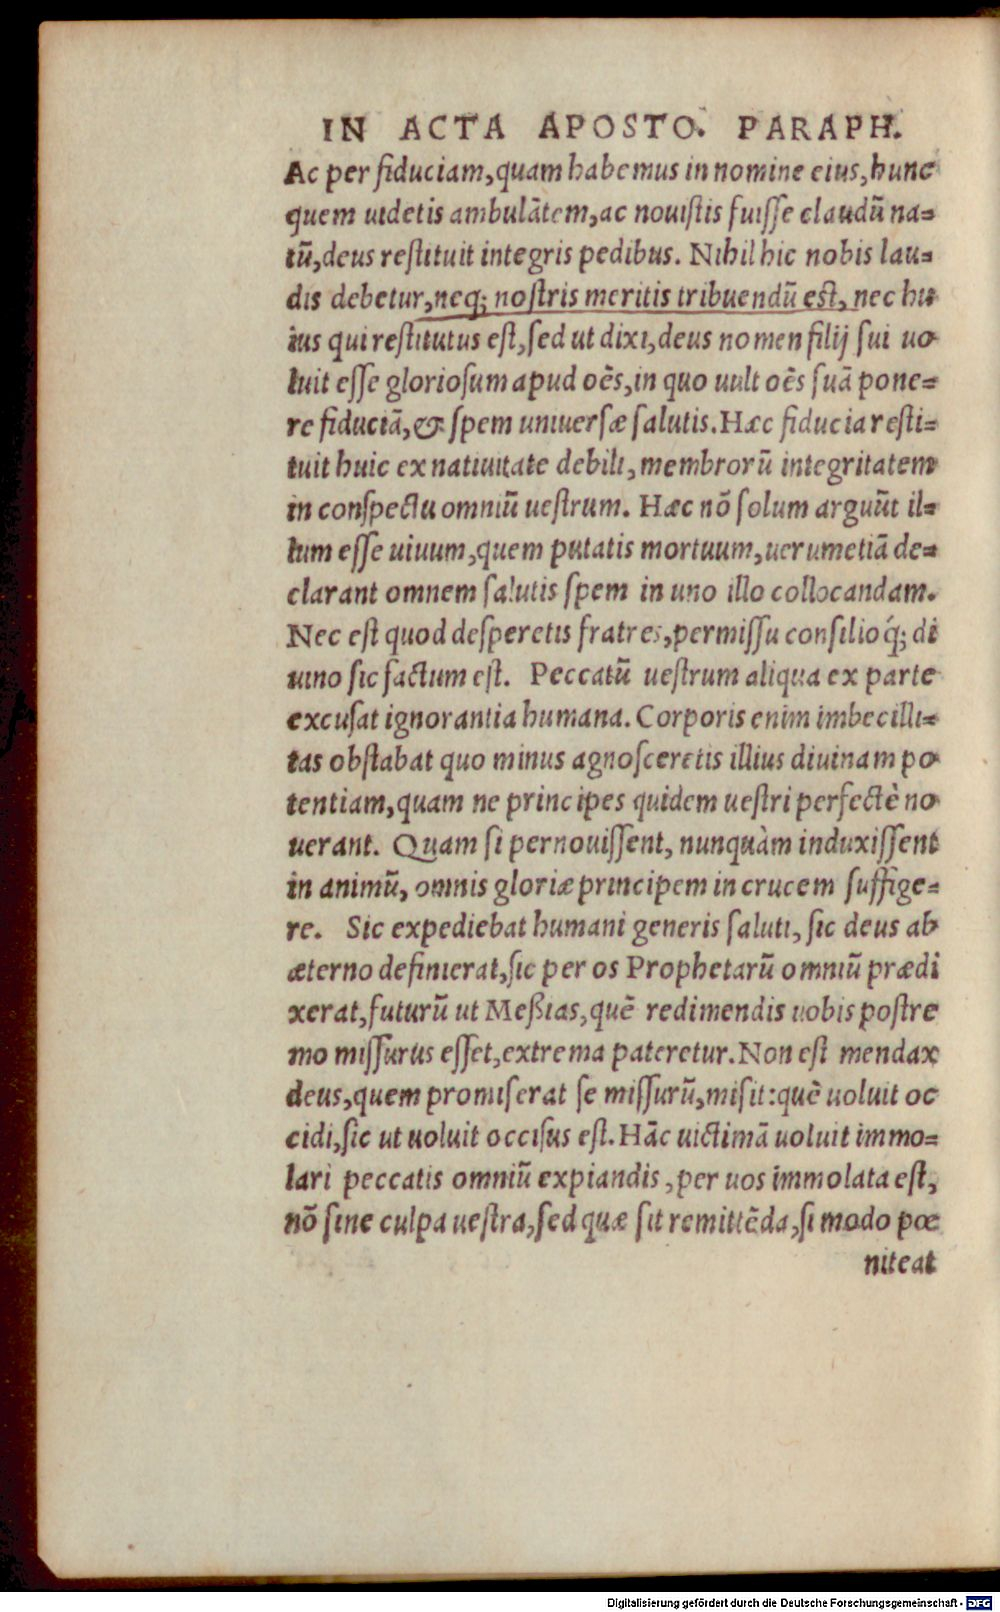 IN ACTA APOSTO. PARAPH.
Ac per fiduciam, quam habemus in nomine eius, hunc
quem uidetis ambulātem, ac nouistis fuisse claudū na=
tū, deus restituit integris pedibus. Nihil hic nobis lau=
dis debetur, neq; nostris meritis tribuendū est, nec hu
ius qui restitutus est, sed ut dixi, deus nomen filij sui uo
luit esse gloriosum apud oēs, in quo uult oēs suā pone=
re fiduciā, & spem uniuersæ salutis. Hæc fiducia resti=
tuit huic ex natiuitate debili, membrorū integritatem
in conspectu omniū uestrum. Hæc nō solum arguūt il=
lum esse uiuum, quem putatis mortuum, uerumetiā de=
clarant omnem salutis spem in uno illo collocandam.
Nec est quod desperetis fratres, permissu consilioq́; di
uino sic factum est. Peccatū uestrum aliqua ex parte
excusat ignorantia humana. Corporis enim imbecilli=
tas obstabat quo minus agnosceretis illius diuinam po
tentiam, quam ne principes quidem uestri perfectè no
uerant. Quam si pernouissent, nunquàm induxissent
in animū, omnis gloriæ principem in crucem suffige=
re. Sic expediebat humani generis saluti, sic deus ab
æterno definierat, sic per os Prophetarū omniū prædi
xerat, futurū ut Meßias, quē redimendis uobis postre
mo missurus esset, extrema pateretur. Non est mendax
deus, quem promiserat se missurū, misit: quē uoluit oc
cidi, sic ut uoluit occisus est. Hāc uictimā uoluit immo=
lari peccatis omniū expiandis, per uos immolata est,
nō sine culpa uestra, sed quæ sit remittēda, si modo pœ
niteat
Digitalisierung gefördert durch die Deutsche Forschungsgemeinschaft - DFG